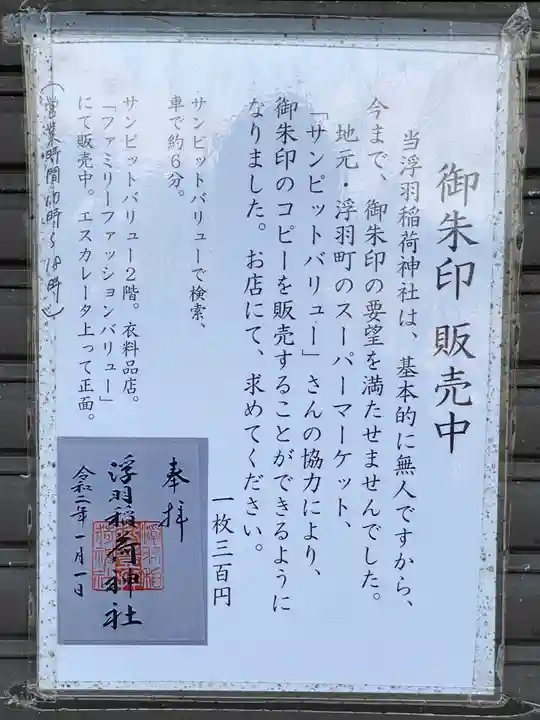 御朱印 販売中
当浮羽稲荷神社は、基本的に無人ですから、
今まで、御朱印の要望を満たせませんでした。
地元・浮羽町のスーパーマーケット、
「サンピットバリュー」さんの協力により、
御朱印のコピーを販売することができるように
なりました。お店にて、求めてください。
一枚三百円
サンピットバリューで検索、
車で約6分。
サンピットバリュー2階。衣料品店。
「ファミリーファッションバリュー」
にて販売中。エスカレータ上って正面。
(営業時間 10時〜18時)
奉拝
浮羽稲荷神社
令和二年一月一日